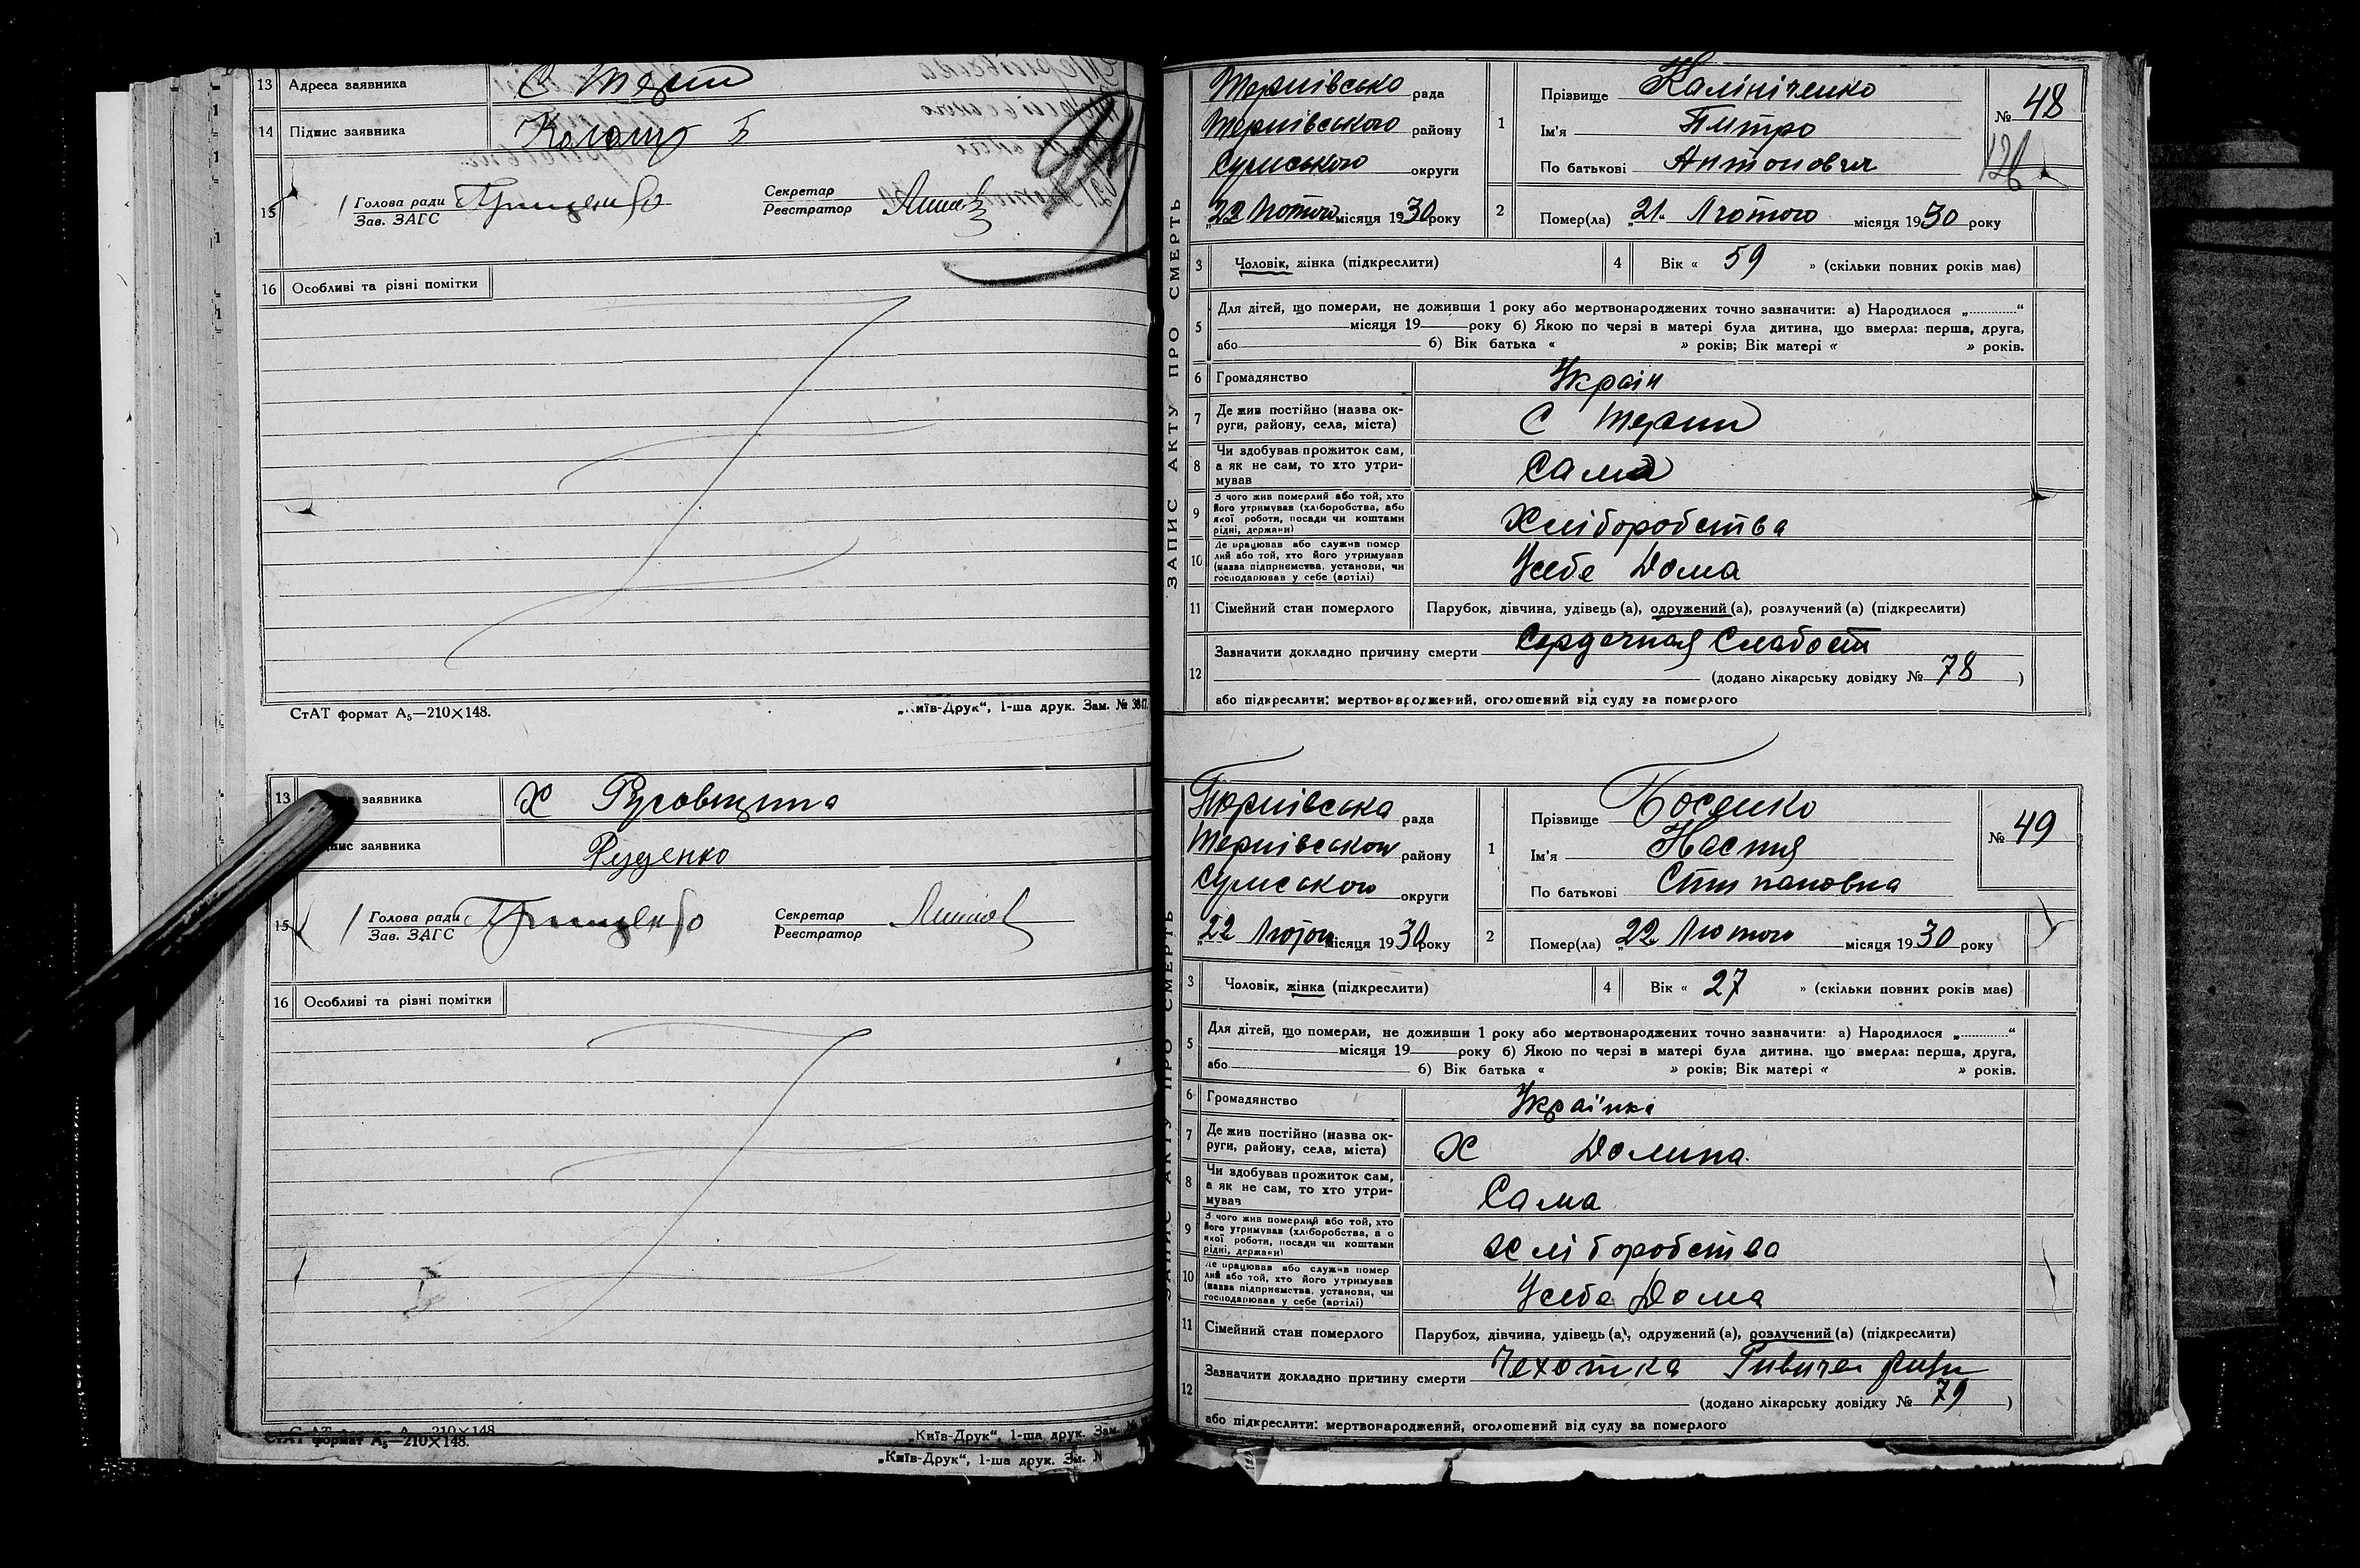 13 Адреса заявника С Терни
14 Підпис заявника
15 Голова ради
Зав. ЗАГС
Секретар
Реєстратор
16 Особливі та різні помітки
СтАТ формат А₅—210×148.
„Київ-Друк“, 1-ша друк. Зам. № 3847.
13 заявника Х Русовщина
заявника Руденко
15 Голова ради
Зав. ЗАГС
Секретар
Реєстратор
16 Особливі та різні помітки
СтАТ формат А₅—210×148.
„Київ-Друк“, 1-ша друк. Зам.
СтАТ формат А₅—210×148.
„Київ-Друк“, 1-ша друк. Зм. №
ЗАПИС АКТУ ПРО СМЕРТЬ
Тернівсько рада
Тернівського району
Сумського округи
„22 Лютого місяця 1930 року
1 Прізвище Калініченко
Ім'я Питро
По батькові Антонович
№ 48
126
2 Помер(ла) „21„ Лютого місяця 1930 року
3 Чоловік, жінка (підкреслити)
4 Вік « 59 » (скільки повних років має)
5 Для дітей, що померли, не доживши 1 року або мертвонароджених точно зазначити: а) Народилося „............“
місяця 19 року б) Якою по черзі в матері була дитина, що вмерла: перша, друга,
або б) Вік батька « » років; Вік матері « » років.
6 Громадянство Украін
7 Де жив постійно (назва ок-
руги, району, села, міста) С Терни
8 Чи здобував прожиток сам,
а як не сам, то хто утри-
мував Сама
9 З чого жив померлий або той, хто
його утримував (хліборобства, або
якої роботи, посади чи коштами
рідні, держави) Хліборобства
10 Де працював або служив помер
лий або той, хто його утримував
(назва підприємства, установи, чи
господарював у себе (артілі) Усебе Дома
11 Сімейний стан померлого Парубок, дівчина, удівець (а), одружений (а), розлучений (а) (підкреслити)
12 Зазначити докладно причину смерти Сердечная Слабост
(додано лікарську довідку № 78 )
або підкреслити: мертвонароджений, оголошений від суду за померлого
ЗАПИС АКТУ ПРО СМЕРТЬ
Тернівська рада
Тернівського району
Сумського округи
„22 місяця 1930 року
1 Прізвище Босенко
Ім'я Настя
По батькові Стипановна
№ 49
2 Помер(ла) „22„ Лютого місяця 1930 року
3 Чоловік, жінка (підкреслити)
4 Вік « 27 » (скільки повних років має)
5 Для дітей, що померли, не доживши 1 року або мертвонароджених точно зазначити: а) Народилося „............“
місяця 19 року б) Якою по черзі в матері була дитина, що вмерла: перша, друга,
або б) Вік батька « » років; Вік матері « » років.
6 Громадянство Українка
7 Де жив постійно (назва ок-
руги, району, села, міста) Х Долина
8 Чи здобував прожиток сам,
а як не сам, то хто утри-
мував Сама
9 З чого жив померлий або той, хто
його утримував (хліборобства, а о
якої роботи, посади чи коштами
рідні, держави) Хліборобства
10 Де працював або служив помер
лий або той, хто його утримував
(назва підприємства, установи, чи
господарював у себе (артілі) Усебе Дома
11 Сімейний стан померлого Парубок, дівчина, удівець (а), одружений (а), розлучений (а) (підкреслити)
12 Зазначити докладно причину смерти Чехотка
(додано лікарську довідку № 79 )
або підкреслити: мертвонароджений, оголошений від суду за померлого